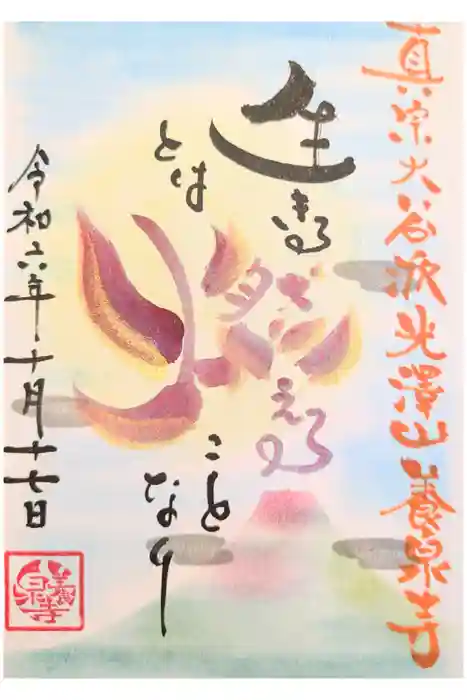 真宗大谷派光澤山養泉寺
生きる
とは
燃える
ことなり
令和六年十月十七日
養泉寺